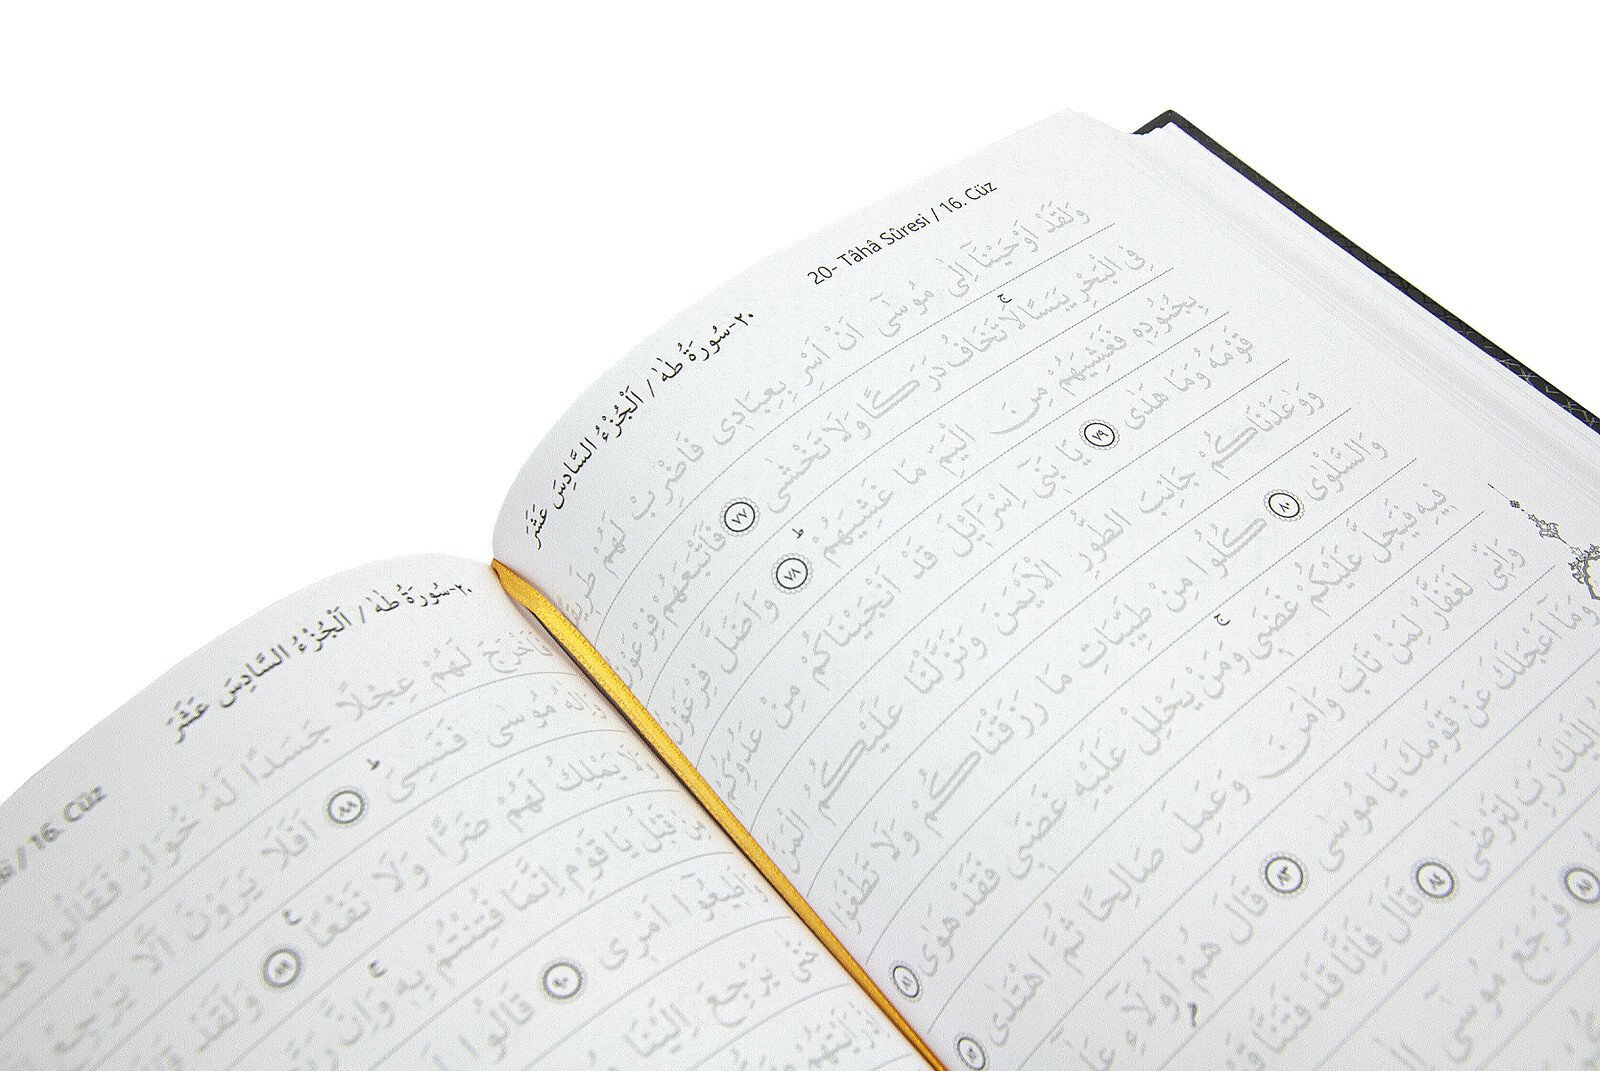 20- Tâhâ Sûresi / 16. Cüz
٢٠-سُورَةُ طٰهٰ / اَلْجُزْءُ السَّادِسَ عَشَرَ
وَلَقَدْ اَوْحَيْنَٓا اِلٰى مُوسٰٓى اَنْ اَسْرِ بِعِبَادِى فَاضْرِبْ لَهُمْ
فِى الْبَحْرِ يَبَسًا لَا تَخَافُ دَرَكًا وَلَا تَخْشٰى ٧٧ فَاَتْبَعَهُمْ فِرْعَوْنُ
بِجُنُودِه۪ فَغَشِيَهُمْ مِنَ الْيَمِّ مَا غَشِيَهُمْ ٧٨ وَاَضَلَّ فِرْعَوْنُ
قَوْمَهُ وَمَا هَدٰى ٧٩ يَا بَن۪ٓى اِسْرَٓائ۪لَ قَدْ اَنْجَيْنَاكُمْ مِنْ عَدُوِّكُمْ
وَوٰعَدْنَاكُمْ جَانِبَ الطُّورِ الْاَيْمَنَ وَنَزَّلْنَا عَلَيْكُمُ الْمَنَّ
وَالسَّلْوٰى ٨٠ كُلُوا مِنْ طَيِّبَاتِ مَا رَزَقْنَاكُمْ وَلَا تَطْغَوْا
ف۪يهِ فَيَحِلَّ عَلَيْكُمْ غَضَب۪ى وَمَنْ يَحْلِلْ عَلَيْهِ غَضَب۪ى فَقَدْ هَوٰى ٨١
وَاِنّ۪ى لَغَفَّارٌ لِمَنْ تَابَ وَاٰمَنَ وَعَمِلَ صَالِحًا ثُمَّ اهْتَدٰى
وَمَٓا اَعْجَلَكَ عَنْ قَوْمِكَ يَا مُوسٰى ٨٣ قَالَ هُمْ اُو۬لَٓاءِ
اِلَيْكَ رَبِّ لِتَرْضٰى ٨٤ قَالَ فَاِنَّا قَدْ فَتَنَّا
فَرَجَعَ مُوسٰٓى
٢٠-سُورَةُ طٰهٰ / اَلْجُزْءُ السَّادِسَ عَشَرَ
/ 16. Cüz
فَاَخْرَجَ لَهُمْ عِجْلًا جَسَدًا لَهُ خُوَارٌ فَقَالُوا
مُوسٰى فَنَسِىَ ٨٨ اَفَلَا يَرَوْنَ اَلَّا يَرْجِعُ
يَمْلِكُ لَهُمْ ضَرًّا وَلَا نَفْعًا ٨٩ وَلَقَدْ
قَبْلُ يَا قَوْمِ اِنَّمَا فُتِنْتُمْ بِه۪ وَاِنَّ
اَمْر۪ى ٩٠ قَالُوا
يَرْجِعَ اِلَيْنَا